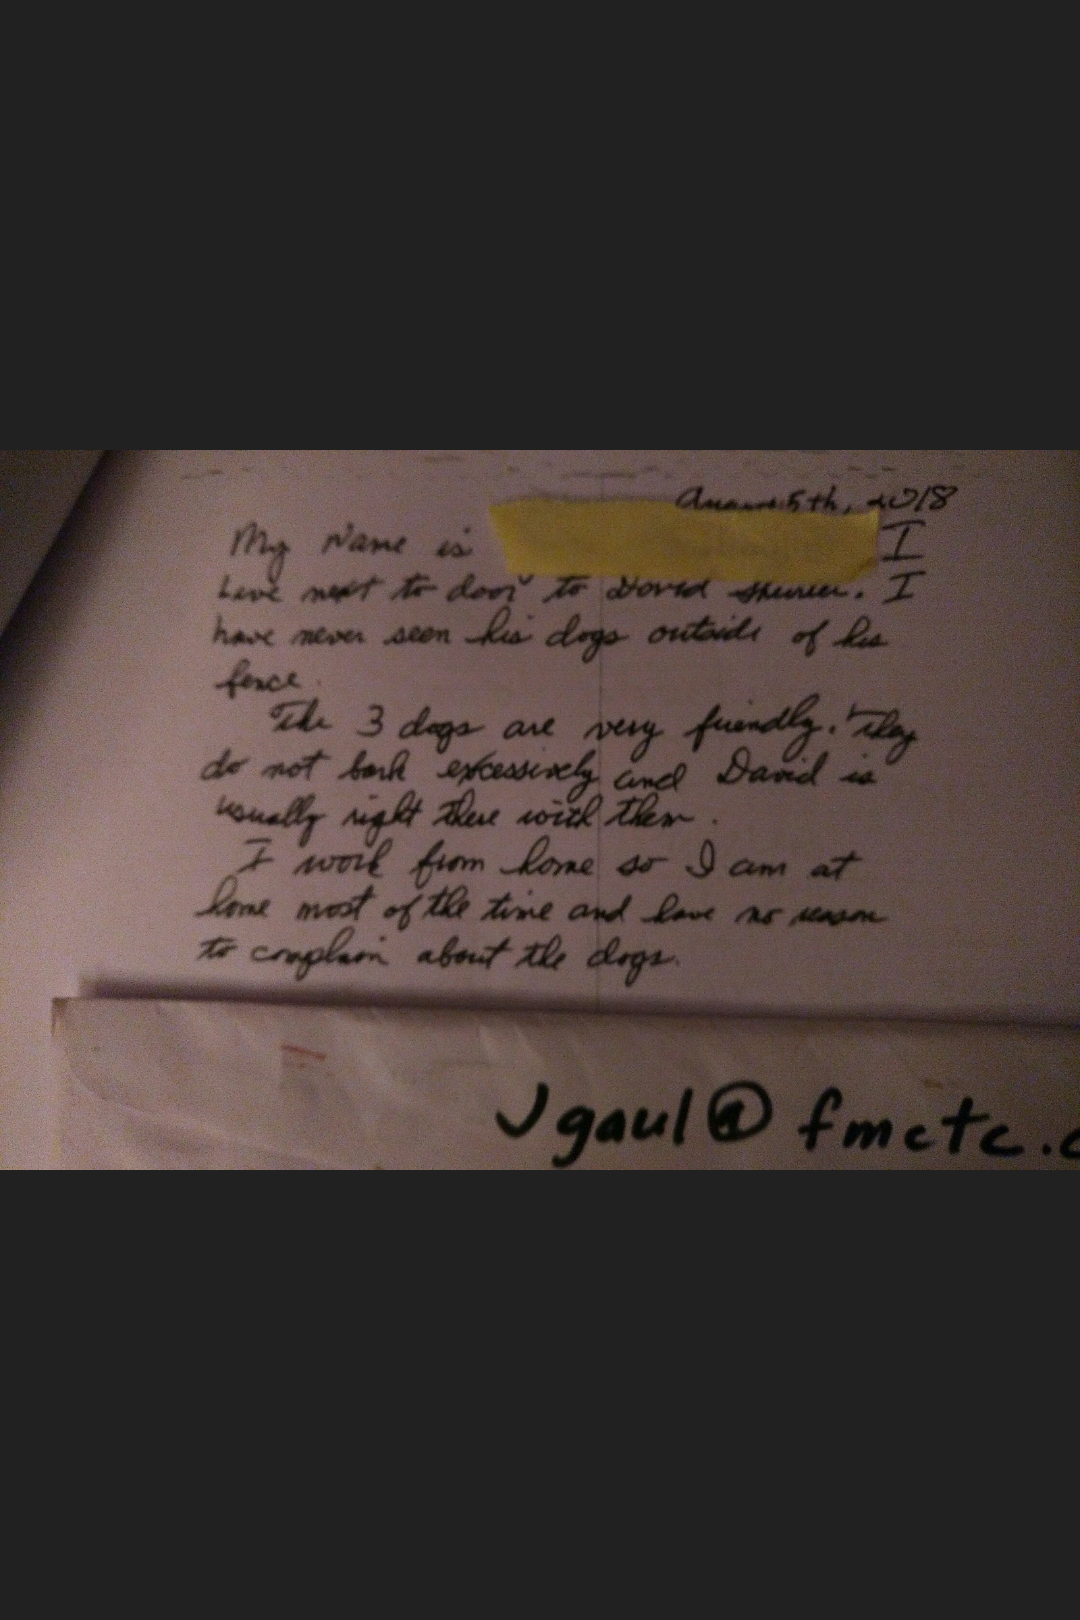 5th, 2018
My Name is I
Live next to door to David I
have never seen his dogs outside of his
fence.
The 3 dogs are very friendly. They
do not bark excessively and David is
usually right there with them.
I work from home so I am at
home most of the time and have no reason
to complain about the dogs.
Jgaul@fmctc.c